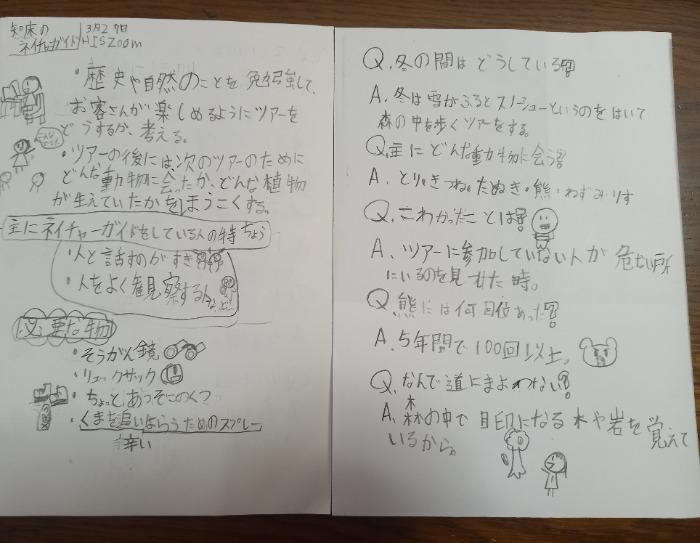 知床の
ネイチャーガイド
3月27日
HIS Zoom
・歴史や自然のことを勉強して、
お客さんが楽しめるようにツアーを
どうするか、考える。
・ツアーの後には次のツアーのために
どんな動物に会ったか、どんな植物
が生えていたかをほうこくする。
主にネイチャーガイドをしている人の特ちょう
・人と話すのがすき
・人をよく観察する人
など
必要な物
・そうがん鏡
・リュックサック
・ちょっとあつぞこのくつ
・くまを追いはらうためのスプレー
辛い
Q.冬の間はどうしている?
A.冬は雪がふるとスノーシューというのをはいて
森の中を歩くツアーをする。
Q.主にどんな動物に会う?
A.とり・きつね・たぬき・熊・ねずみ・りす
Q.こわかったことは?
A.ツアーに参加していない人が危ない所
にいるのを見せた時。
Q.熊には何回位あった?
A.5年間で100回以上。
Q.なんで道にまよわない?
A.森の中で目印になる木や岩を覚えて
いるから。